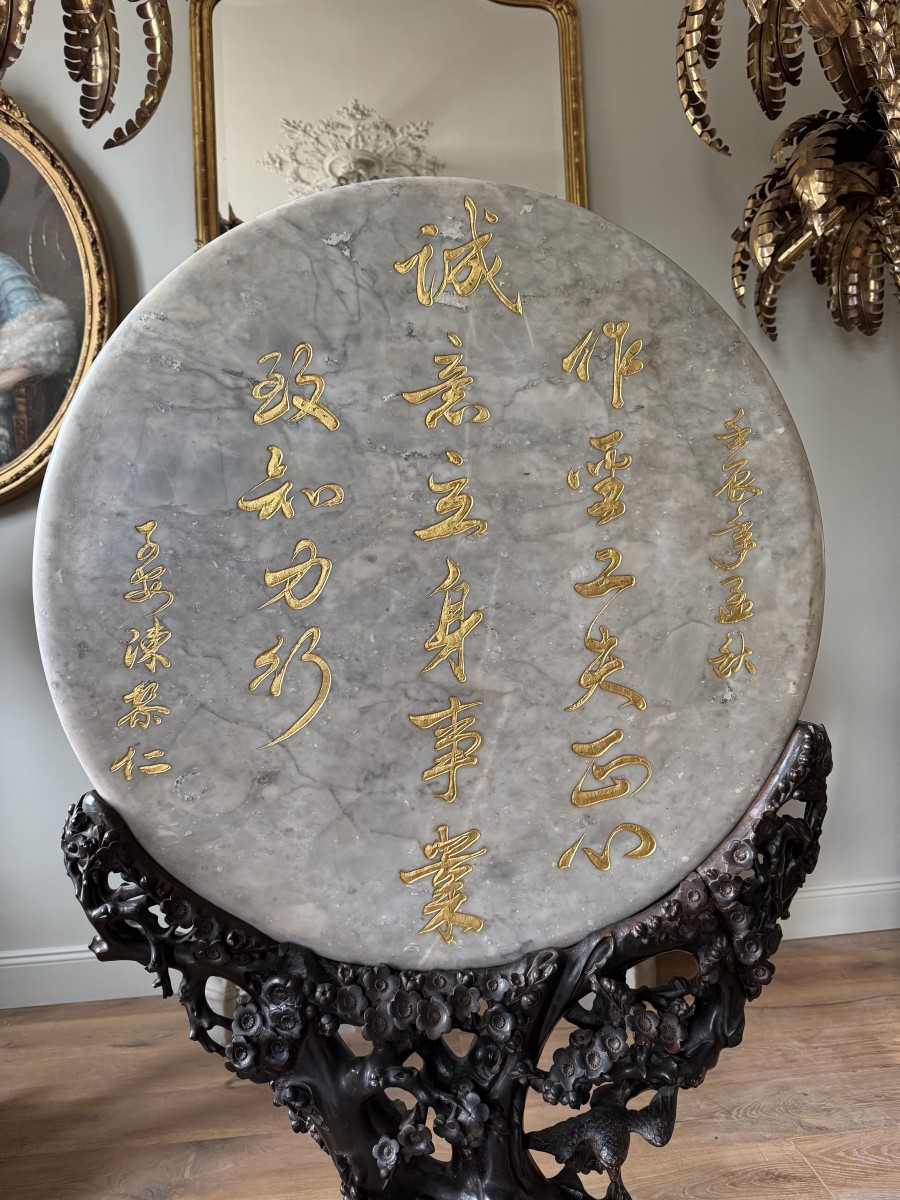 壬辰年孟秋
作聖工夫正心
誠意立身事業
致知力行
子安陳仁